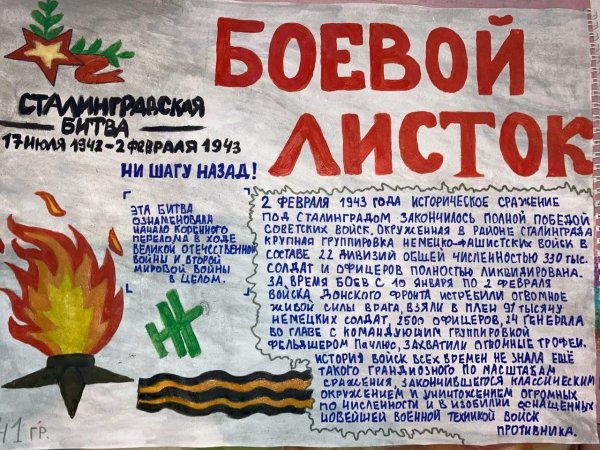 БОЕВОЙ
ЛИСТОК
СТАЛИНГРАДСКАЯ
БИТВА
17 ИЮЛЯ 1942-2 ФЕВРАЛЯ 1943
НИ ШАГУ НАЗАД!
ЭТА БИТВА
ОЗНАМЕНОВАЛА
НАЧАЛО КОРЕННОГО
ПЕРЕЛОМА В ХОДЕ
ВЕЛИКОЙ ОТЕЧЕСТВЕННОЙ
ВОЙНЫ И ВТОРОЙ
МИРОВОЙ ВОЙНЫ
В ЦЕЛОМ.
2 ФЕВРАЛЯ 1943 ГОДА ИСТОРИЧЕСКОЕ СРАЖЕНИЕ
ПОД СТАЛИНГРАДОМ ЗАКОНЧИЛОСЬ ПОЛНОЙ ПОБЕДОЙ
СОВЕТСКИХ ВОЙСК. ОКРУЖЕННАЯ В РАЙОНЕ СТАЛИНГРАДА
КРУПНАЯ ГРУППИРОВКА НЕМЕЦКО-ФАШИСТСКИХ ВОЙСК В
СОСТАВЕ 22 ДИВИЗИЙ ОБЩЕЙ ЧИСЛЕННОСТЬЮ 330 ТЫС.
СОЛДАТ И ОФИЦЕРОВ ПОЛНОСТЬЮ ЛИКВИДИРОВАНА.
ЗА ВРЕМЯ БОЕВ С 10 ЯНВАРЯ ПО 2 ФЕВРАЛЯ
ВОЙСКА ДОНСКОГО ФРОНТА ИСТРЕБИЛИ ОГРОМНОЕ
ЖИВОЙ СИЛЫ ВРАГА, ВЗЯЛИ В ПЛЕН 97 ТЫСЯЧУ
НЕМЕЦКИХ СОЛДАТ, 2500 ОФИЦЕРОВ, 24 ГЕНЕРАЛА
ВО ГЛАВЕ С КОМАНДУЮЩИМ ГРУППИРОВКОЙ
ФЕЛЬДШЕРОМ ПАУЛЮ, ЗАХВАТИЛИ ОГРОМНЫЕ ТРОФЕИ.
ИСТОРИЯ ВОЙСК ВСЕХ ВРЕМЕН НЕ ЗНАЛА ЕЩЁ
ТАКОГО ГРАНДИОЗНОГО ПО МАСШТАБАМ
СРАЖЕНИЯ, ЗАКОНЧИВШЕГОСЯ КЛАССИЧЕСКИМ
ОКРУЖЕНИЕМ И УНИЧТОЖЕНИЕМ ОГРОМНЫХ
ПО ЧИСЛЕННОСТИ И В ИЗОБИЛИИ ОСНАЩЕННЫХ
НОВЕЙШЕЙ ВОЕННОЙ ТЕХНИКОЙ ВОЙСК
ПРОТИВНИКА.
41 ГР.